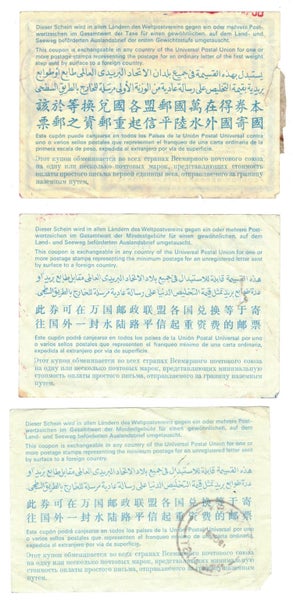 Dieser Schein wird in allen Ländern des Weltpostvereins gegen ein oder mehrere Post-
wertzeichen im Gesamtwert der Taxe für einen gewöhnlichen, auf dem Land- und
Seeweg beförderten Auslandsbrief der ersten Gewichtsstufe umgetauscht.
This coupon is exchangeable in any country of the Universal Postal Union for one
or more postage-stamps representing the postage for an ordinary letter of the first weight
step sent by surface to a foreign country.
يستبدل بهذه القسيمة في جميع بلدان الاتحاد البريدى العالمى طابع او طوابع
本券得在萬國郵盟各國兌換等於該
國寄國外水陸平信起重郵資之郵票
Este cupón puede canjearse en todos los Países de la Unión Postal Universal contra
uno o varios sellos de correos que representen el franqueo de una carta ordinaria de la
primera escala de peso, expedida al extranjero por vía de superficie.
Этот купон обменивается во всех странах Всемирного почтового союза
на одну или несколько почтовых марок, представляющих стоимость
оплаты простого письма первой единицы веса, отправляемого за границу
наземным путем.
Dieser Schein wird in allen Ländern des Weltpostvereins gegen ein oder mehrere Post-
wertzeichen im Gesamtwert der Mindestgebühr für einen gewöhnlichen, auf dem
Land- und Seeweg beförderten Auslandsbrief umgetauscht.
This coupon is exchangeable in any country of the Universal Postal Union for one or
more postage stamps representing the minimum postage for an unregistered letter sent
by surface to a foreign country.
هذه القسيمة قابلة للاستبدال في جميع بلاد الاتحاد البريدى العالمى مقابل طابع بريد أو
此券可在万国邮政联盟各国兑换等于寄
往国外一封水陆路平信起重资费的邮票
Este cupón podrá canjearse en todos los países de la Unión Postal Universal por uno
o varios sellos postales que representen el franqueo mínimo de una carta ordinaria,
expedida al extranjero por vía de superficie.
Этот купон обменивается во всех странах Всемирного почтового союза
на одну или несколько почтовых марок, представляющих минимальную
стоимость оплаты простого письма, отправляемого за границу наземным
путем.
Dieser Schein wird in allen Ländern des Weltpostvereins gegen ein oder mehrere Post-
wertzeichen im Gesamtwert der Mindestgebühr für einen gewöhnlichen, auf dem
Land- und Seeweg beförderten Auslandsbrief umgetauscht.
This coupon is exchangeable in any country of the Universal Postal Union for one or
more postage stamps representing the minimum postage for an unregistered letter sent
by surface to a foreign country.
هذه القسيمة قابلة للاستبدال في جميع بلاد الاتحاد البريدى العالمى مقابل طابع بريد أو
此券可在万国邮政联盟各国兑换等于寄
往国外一封水陆路平信起重资费的邮票
Este cupón podrá canjearse en todos los países de la Unión Postal Universal por uno
o varios sellos postales que representen el franqueo mínimo de una carta ordinaria,
expedida al extranjero por vía de superficie.
Этот купон обменивается во всех странах Всемирного почтового союза
на одну или несколько почтовых марок, представляющих минимальную
стоимость оплаты простого письма, отправляемого за границу наземным
путем.